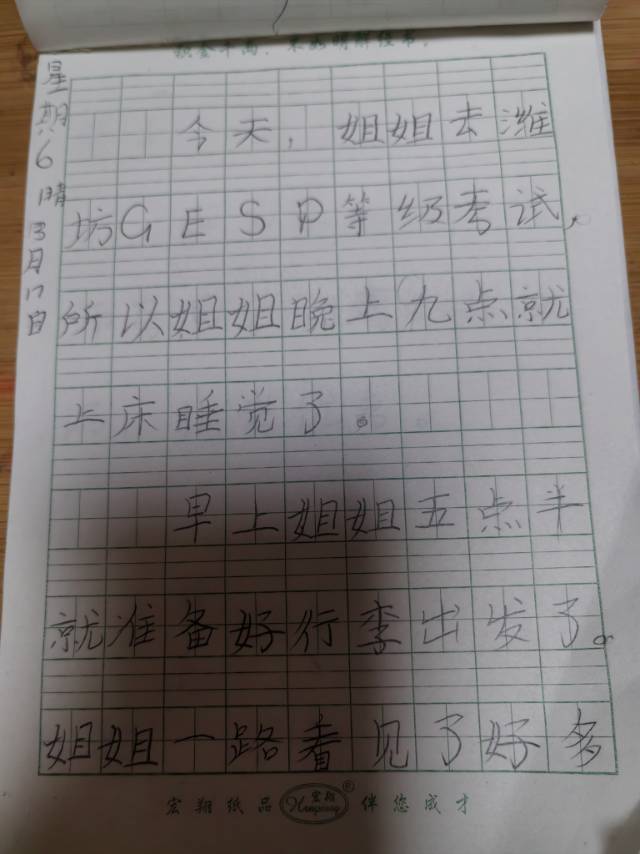 积金千两，不如明解经书。
星期6 晴 3月17日
今天，姐姐去潍
坊GESP等级考试，
所以姐姐晚上九点就
上床睡觉了。
早上姐姐五点半
就准备好行李出发了。
姐姐一路看见了好多
宏翔纸品 宏翔 Hongxiang ® 伴您成才